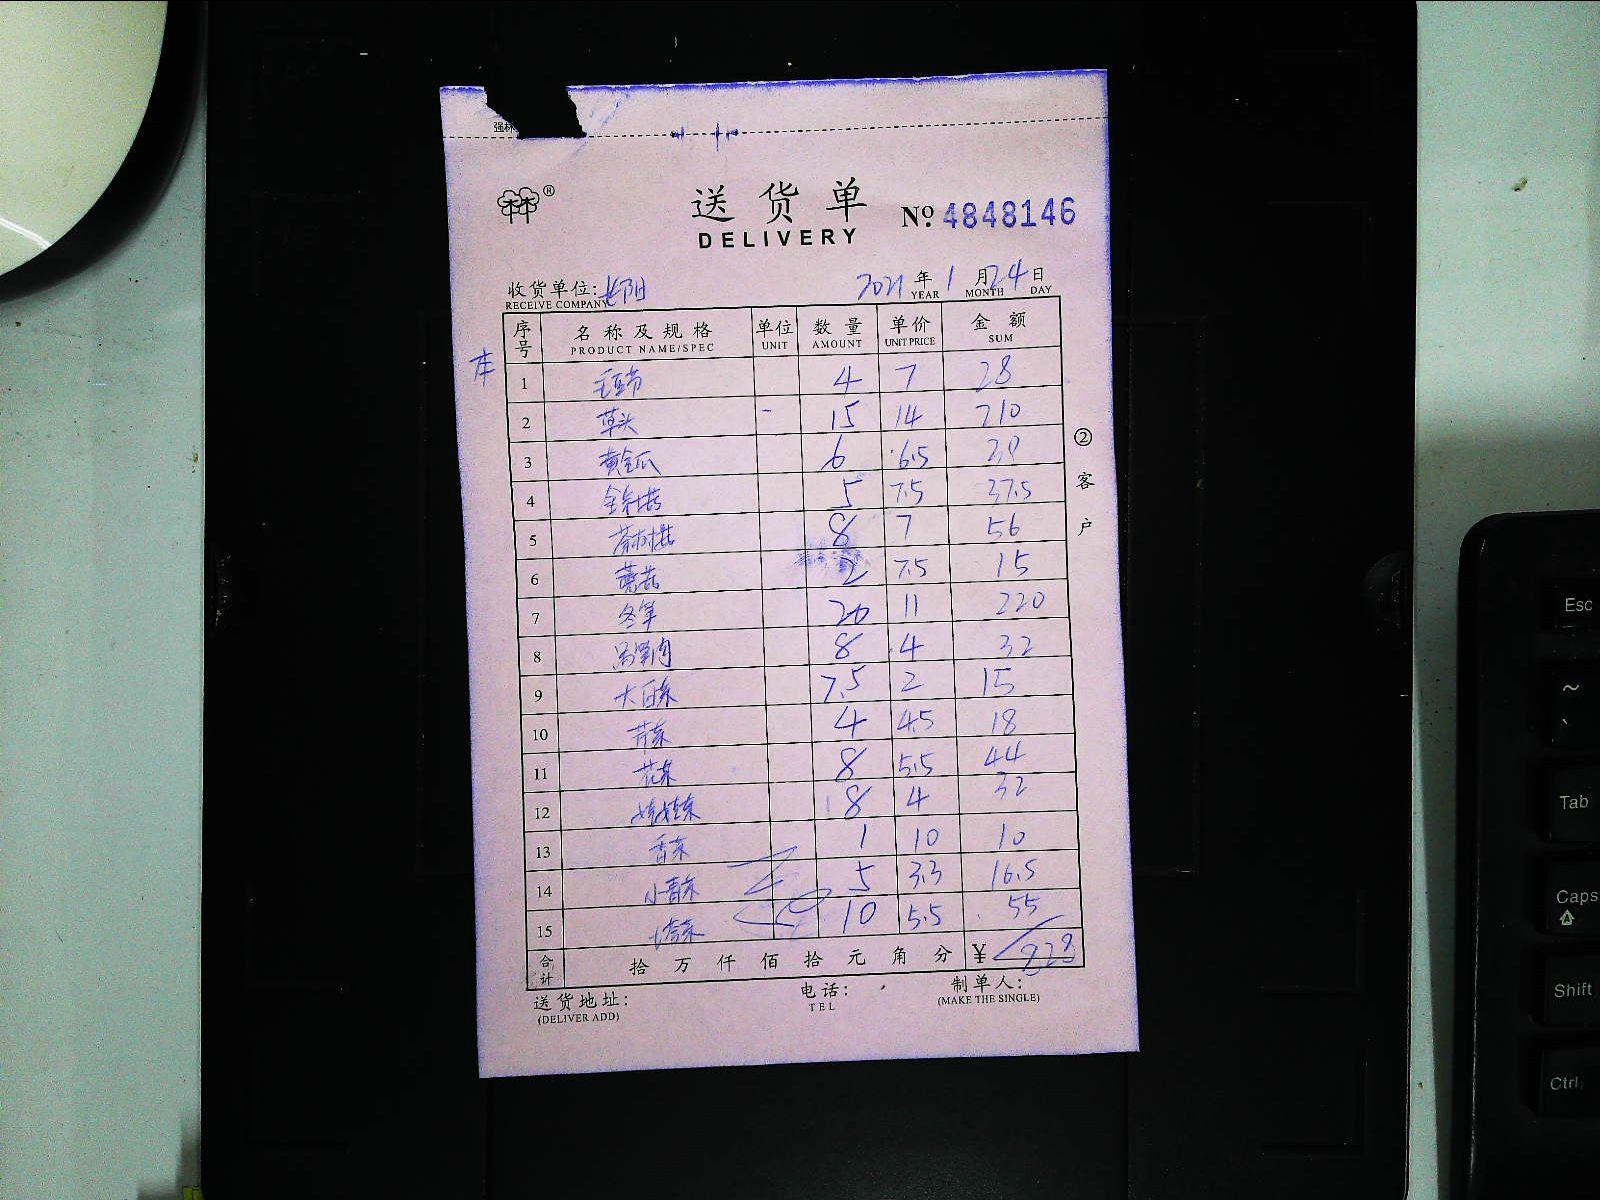 送货单
DELIVERY
No. 4848146
收货单位:
RECEIVE COMPANY
2021 年 1 月 24 日
YEAR MONTH DAY
序号 名称及规格 单位 数量 单价 金额
PRODUCT NAME/SPEC UNIT AMOUNT UNIT PRICE SUM
1 毛豆节 4 7 28
2 草头 15 14 210
3 黄金瓜 6 6.5 39
4 金针菇 5 7.5 37.5
5 茶树菇 8 7 56
6 蘑菇 2 7.5 15
7 冬笋 20 11 220
8 8 4 32
9 大白菜 7.5 2 15
10 芹菜 4 4.5 18
11 花菜 8 5.5 44
12 娃娃菜 8 4 32
13 香菜 1 10 10
14 小青菜 5 3.3 16.5
15 10 5.5 55
合计 拾 万 仟 佰 拾 元 角 分 ¥ 828
②客户
送货地址:
(DELIVER ADD)
电话:
TEL
制单人:
(MAKE THE SINGLE)
Esc
~
`
Tab
Caps
Shift
Ctrl